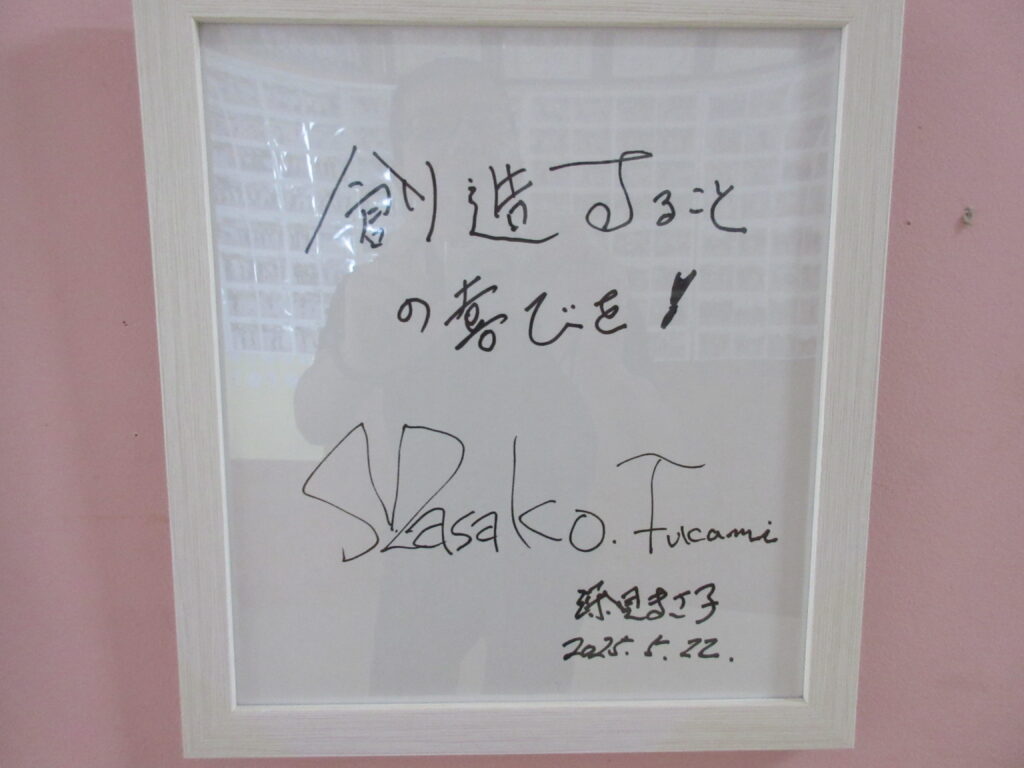 創造すること
の喜びを!
Masako. Fukami
深見まさ子
2025.5.22.